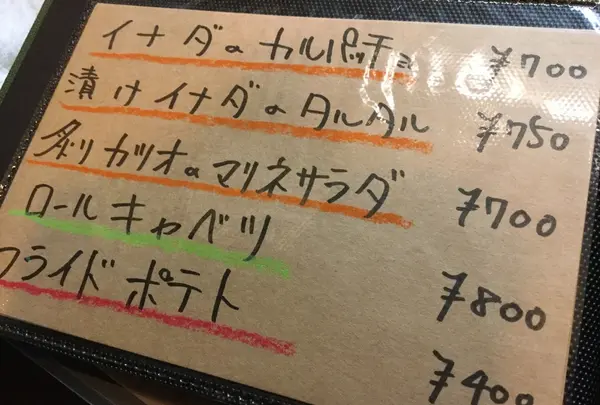 イナダのカルパッチョ ¥700
漬けイナダのタルタル ¥750
炙りカツオのマリネサラダ ¥700
ロールキャベツ ¥800
フライドポテト ¥400